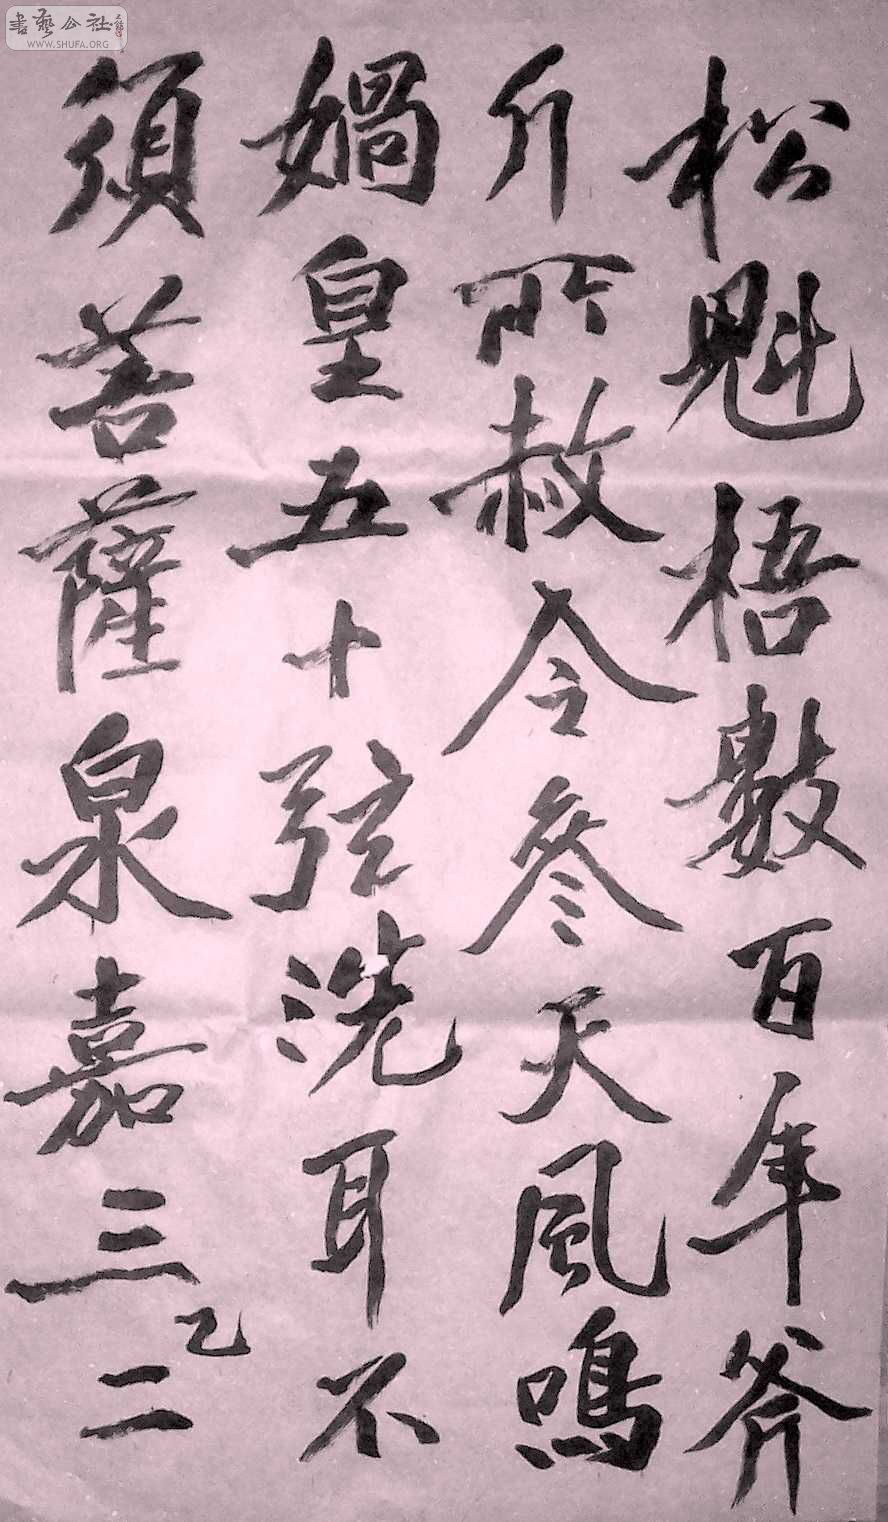 松魁梧數百年斧
斤所赦令參天風鳴
媧皇五十弦洗耳不
須菩薩泉嘉三二
乙
書藝公社
WWW.SHUFA.ORG